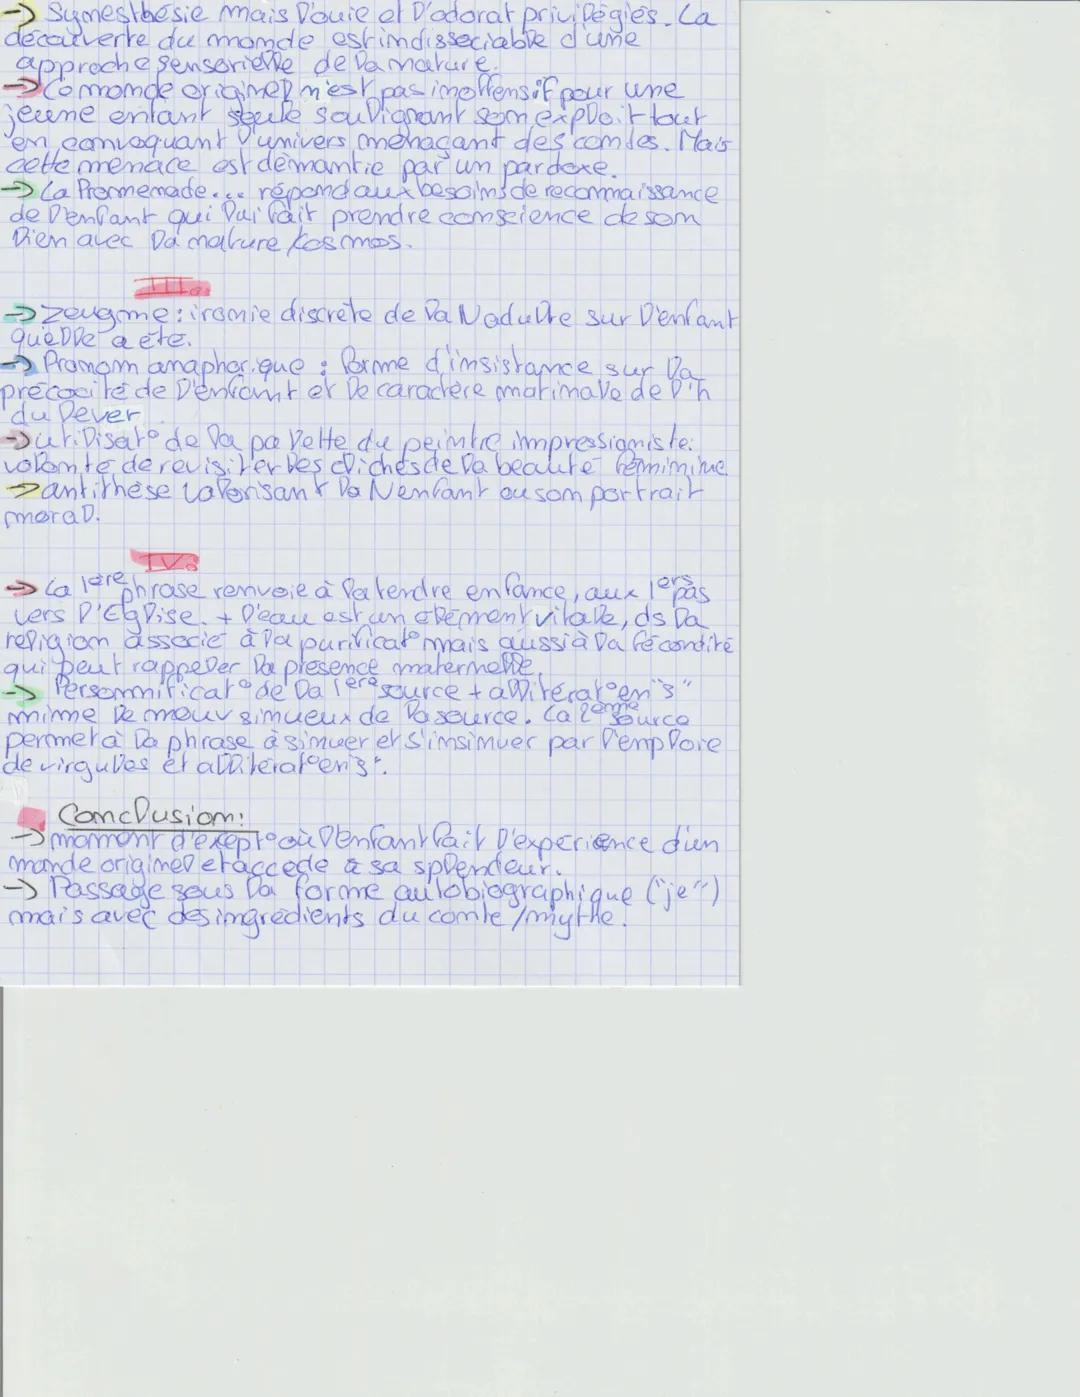 -> Synesthésie mais l'ouie et l'odorat privilégiés. La
découverte du monde est indissociable d'une
approche sensorielle de la nature.
-> Ce monde originel n'est pas inoffensif pour une
jeune enfant seule soulignant son exploit tout
en convoquant l'univers menaçant des contes. Mais
cette menace est démantie par un pardoxe.
-> La Promenade... répond aux besoins de reconnaissance
de l'enfant qui lui fait prendre conscience de son
lien avec la nature / cosmos.
III.
-> Zeugme : ironie discrète de la N adulte sur l'enfant
qu'elle a été.
-> Pronom anaphorique : forme d'insistance sur la
précocité de l'enfant et le caractère matinale de l'h
du lever
-> utilisat° de la palette du peintre impressioniste:
volonté de revisiter les clichés de la beauté féminine
-> antithèse valorisant la N enfant ou son portrait
moral.
IV.
-> La 1ère phrase renvoie à la tendre enfance, aux 1ers pas
vers l'Eglise. + l'eau est un élément vitale, ds la
religion associé à la purificat° mais aussi à la fécondité
qui peut rappeler la présence maternelle.
-> Personnificat° de la 1ère source + allitérat° en "s"
mime le mouv sinueux de la source. La 2ème source
permet à la phrase à sinuer et s'insinuer par l'emploie
de virgules et allitérat° en "s".
Conclusion:
-> moment d'exept° où l'enfant fait l'expérience d'un
monde originel et accède à sa splendeur.
-> Passage sous la forme autobiographique ("je")
mais avec des ingrédients du conte / mythe.